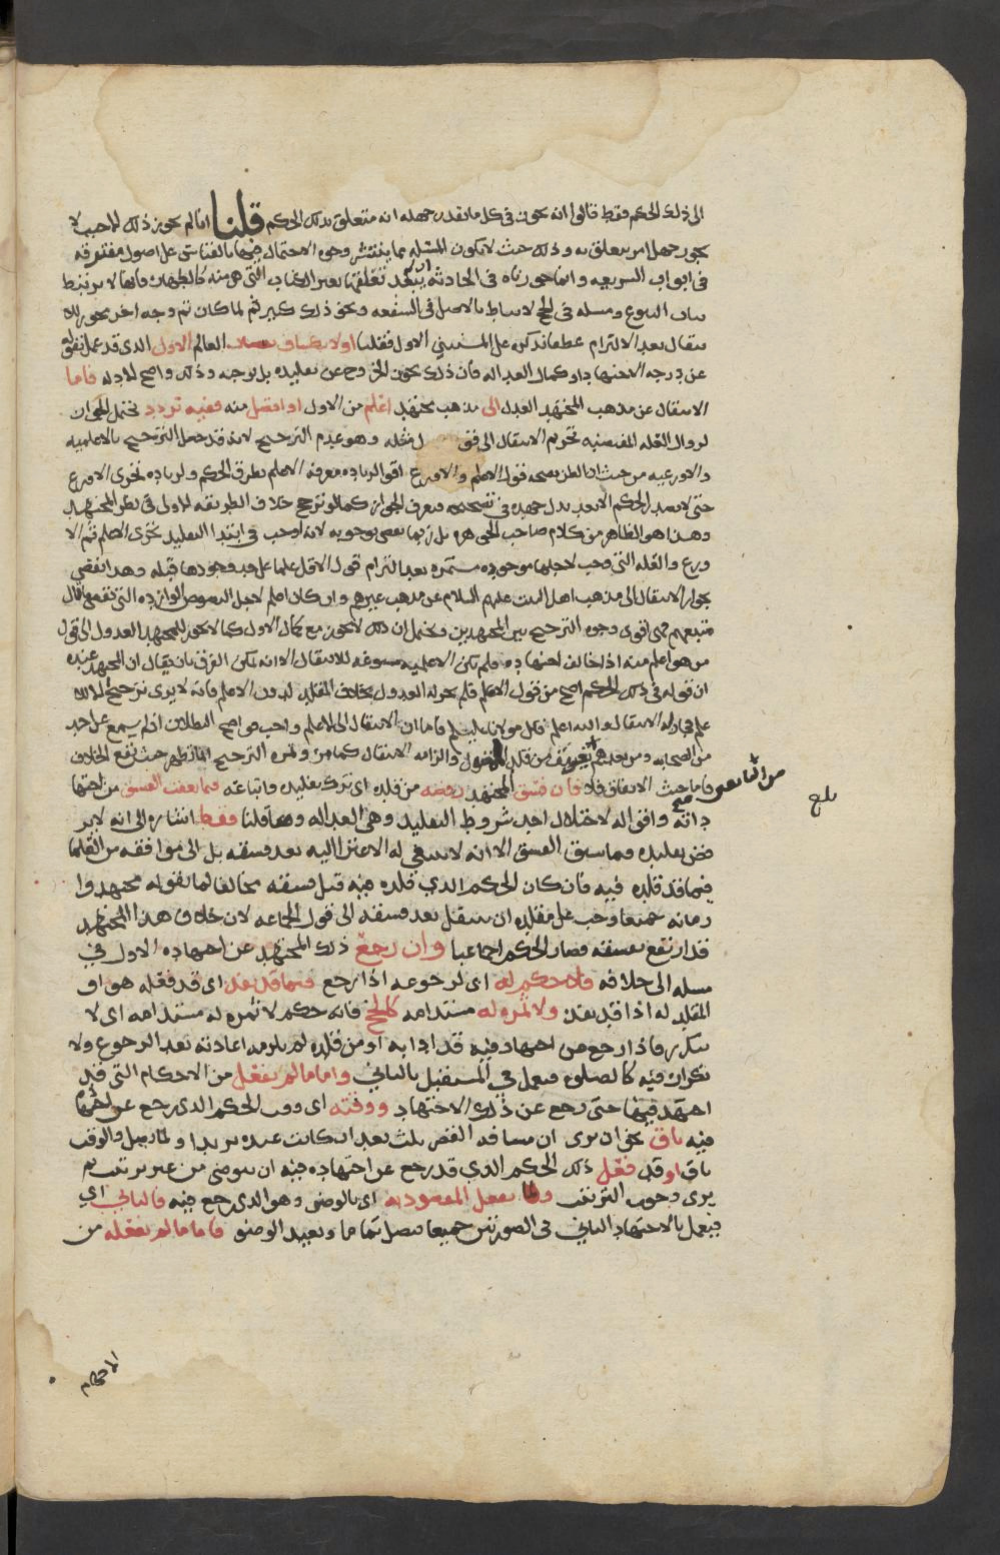 الى ذلك الحكم فقط قالوا انه يجوز في كل ما تقدر جهله انه متعلق بذلك الحكم قلنا انا لم نجوز ذلك للاحب لا
يجوز جهل امر يتعلق به وذلك حيث لا تكون المسئلة مما ينتشر وجوه الاحتمال فيها بالقياس على اصول مفترقه
في ابواب الشريعه وانما جوزناه في الحادثة تعلقها بغير الكتاب التي هي منه كالطهارات فانها لا ترتبط
بباب البيوع ومسله في الحج لا ترتبط بالاصل في الشفعه ونحو ذلك كثير ثم لما كان ثم وجه اخر يجوز لاجله
الانتقال بعد الالتزام عطفا ذكره على المستثنى الاول فقلنا او لانكشاف نقصان العالم الاول الذي قد عمل بقوله
عن درجه الاجتهاد او كمال العداله فان ذلك يجوز الخروج عن تقليده بل يوجبه وذلك واضح للادله فاما
الانتقال عن مذهب المجتهد العدل الى مذهب مجتهد اعلم من الاول او افضل منه ففيه تردد يحتمل الجواز
لزوال العله المقتضيه تحريم الانتقال الى قول مثله وهو عدم الترجيح لانه قد حصل الترجيح بالاعلميه
والاورعيه من حيث ان الظن بصحه قول الاعلم والاورع اقوى لزياده معرفه الاعلم بطرق الحكم ولزياده تحري الاورع
حتى لا يصدر الحكم الا بعد بذل جهده في تصحيحه فيعرف الجواز كما لو ترجح خلاف الطريقه الاولى في نظر المجتهد
وهذا هو الظاهر من كلام صاحب الجوهره بل ربما يقضي بوجوبه لانه اوجب في ابتدا التقليد تحري الاعلم ثم الا
ورع والعله التي وجب لاجلها موجوده مستمره بعد التزام قول الاقل علما على حد وجودها قبله وهذا يقضي
بجواز الانتقال الى مذهب اهل البيت عليهم السلام عن مذهب غيرهم وان كان اعلم لاجل النصوص الوارده التي تقضي بان
متبعهم هي اقوى وجوه الترجيح بين المجتهدين ويحتمل ان ذلك لا يجوز مع كمال الاول كما لا يجوز للمجتهد العدول الى قول
من هو اعلم منه اذا خالف اجتهاده فلم تكن الاعلميه مسوغه للانتقال الا انه يمكن الفرق بان يقال ان المجتهد عنده
ان قوله في ذلك الحكم اصح من قول الاعلم فلم يجز له العدول بخلاف المقلد لدون الاعلم فانه لا يرى ترجيحا لذلك
علم فجاز له الانتقال والله اعلم قال مولانا عليلم فاما ان الانتقال الى الاعلم واجب فواضح البطلان اذ لم يسمع عن احد
من الصحابه ومن بعدهم تعنيف من قلد المفضول والزامه الانتقال كما مر وثمرة الترجيح انما تظهر حيث يقع الخلاف
من التابعين
فاما حيث الاتفاق فلا فان فسق المجتهد رفضه من قلده اي ترك تقليده واتباعه فيما تعقب الفسق من اجتها
بلغ
داته وافق له لاختلال احد شروط التقليد وهي العداله وقولنا فقط اشاره الى انه لا ير
فض تقليده فيما سبق الفسق الا انه لا ينبغي له الاعتزا اليه بعد فسقه بل الى موافقه من العلما
فيما قد قلده فيه فان كان الحكم الذي قلده فيه قبل فسقه مخالفا لما يقوله مجتهدوا
زمانه جميعا وجب على مقلده ان ينتقل بعد فسقه الى قول الجماعه لان خلاف هذا المجتهد
قد ارتفع بفسقه فصار الحكم اجماعيا وان رجع ذلك المجتهد عن اجتهاده الاول في
مسله الى خلافه فلا حكم له اي لرجوعه اذا رجع فيما قد نفذ اي قد فعله هو او
المقلد له اذا قد نفذ ولا ثمره له مستدامه كالحج فانه حكم لا ثمره له مستدامه اي لا
تتكرر فاذا رجع من اجتهاد فيه قد ادا به او من قلده لم يلزمه اعادته بعد الرجوع ولا
تكرار فيه كالصلوه فيعمل في المستقبل بالثاني واما ما لم يفعل من الاحكام التي قد
اجتهد فيها حتى رجع عن ذلك الاجتهاد ووقته اي ووقت الحكم الذي رجع عن اجتهاده
فيه باق نحو ان يرى ان مسافه القصر ثلث بعد ان كانت عنده بريدا ولما يصل والوقت
باق او قد فعل ذلك الحكم الذي قد رجع عن اجتهاده فيه ان يتوضى من غير ترتيب ثم
يرى وجوب الترتيب ولما يفعل المقصود به اي بالوضو وهو الذي رجع فيه فبالثاني اي
فيعمل بالاجتهاد الثاني في الصورتين جميعا فيصلي تماما ويعيد الوضو فاما ما لم يفعله من
الاحكام